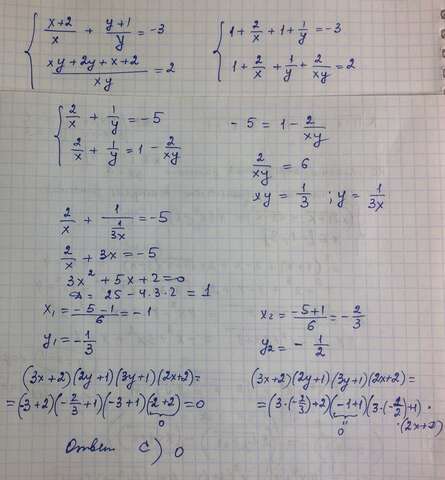 { (x+2)/x + (y+1)/y = -3
(xy+2y+x+2)/xy = 2
{ 1 + 2/x + 1 + 1/y = -3
1 + 2/x + 1/y + 2/xy = 2
{ 2/x + 1/y = -5
2/x + 1/y = 1 - 2/xy
-5 = 1 - 2/xy
2/xy = 6
xy = 1/3 ; y = 1/3x
2/x + 1/(1/3x) = -5
2/x + 3x = -5
3x² + 5x + 2 = 0
D = 25 - 4.3.2 = 1
x₁ = (-5-1)/6 = -1
y₁ = -1/3
x₂ = (-5+1)/6 = -2/3
y₂ = -1/2
(3x+2)(2y+1)(3y+1)(2x+2) =
= (-3+2)(-2/3+1)(-3+1)(2+2) = 0
0
(3x+2)(2y+1)(3y+1)(2x+2) =
= (3·(-2/3)+2)(-1+1)(3·(-2/2)+1) ·
0
· (2x+2)
Ответ C) 0